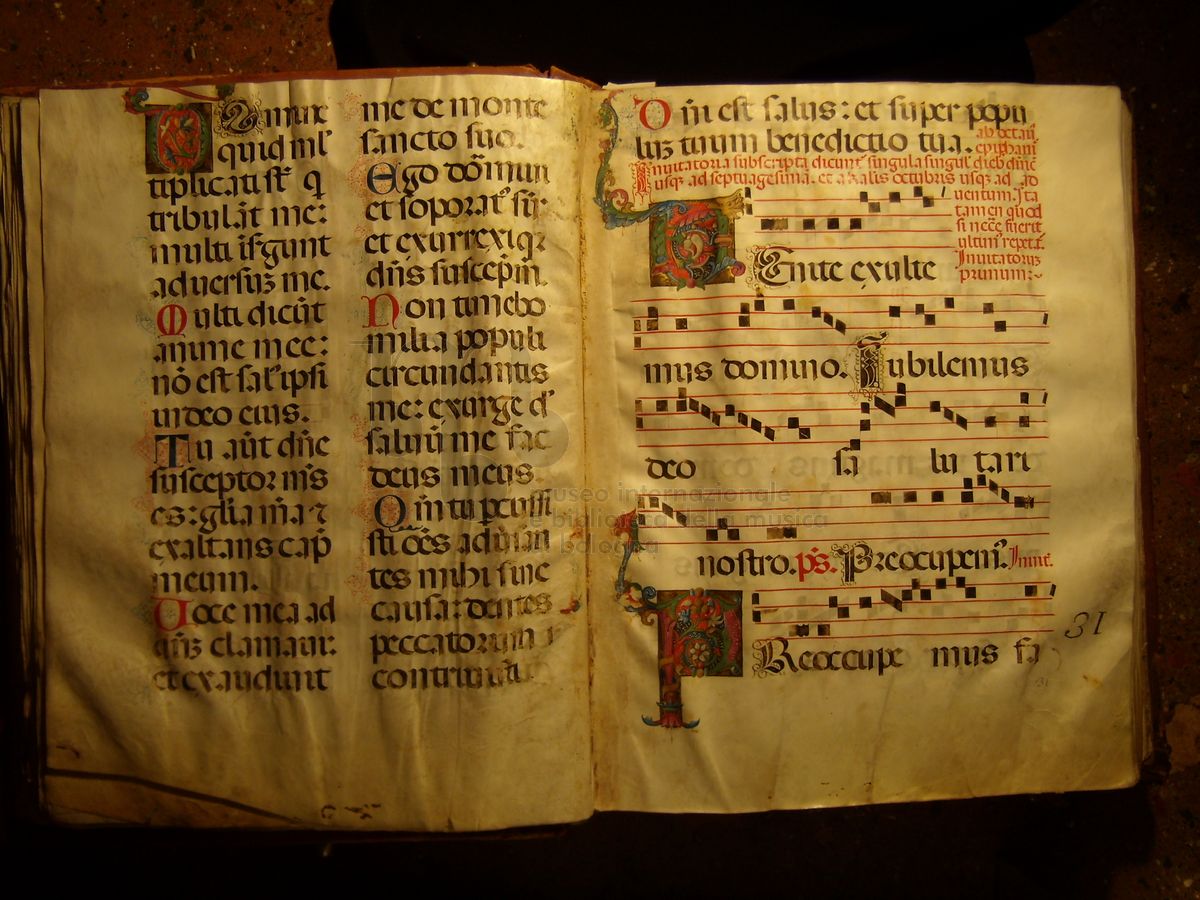 Domine
quid ml̃
tiplicati st̃ q̃
tribulãt me:
multi ĩsurgunt
adversuz me.
Multi dicũt
anime mee:
nõ est sal'ipsi
in deo eius.
Tu aũt dñe
susceptor m's
es: glĩa m̃a ⁊
exaltans cap̃
meum.
Uoce mea ad
dñz clamaui:
et exaudiuit
me de monte
sancto suo.
Ego dormiui
et soporat'
et exurrexi q
dñs suscepit
Non timebo
milia populi
circundantis
me: exurge d'
saluũ me fac
deus meus.
Qm̃ tu pcussi
sti oẽs
tes mihi sine
causa: dentes
peccatorum
contriuisti
Dñi est salus: et super popu
luz tuum benedictio tua. ab octaũ
epiphani
Inuitatoria subscripta dicunt' singula singul' dieb' dñic'
usq; ad septuagesimã. et a kalis octubris usq; ad ad
uentum. Ita
tamen quod
si necẽ fuerit
ultimũ repet't
Inuitatoriuz
primum:~
Uenite exulte
mus domino. Iubilemus
deo sa lu tari
nostro. ps. Preocupem'. Inuit.
PReoccupe mus fa
31
31
museo internazionale
e biblioteca della musica
di bologna